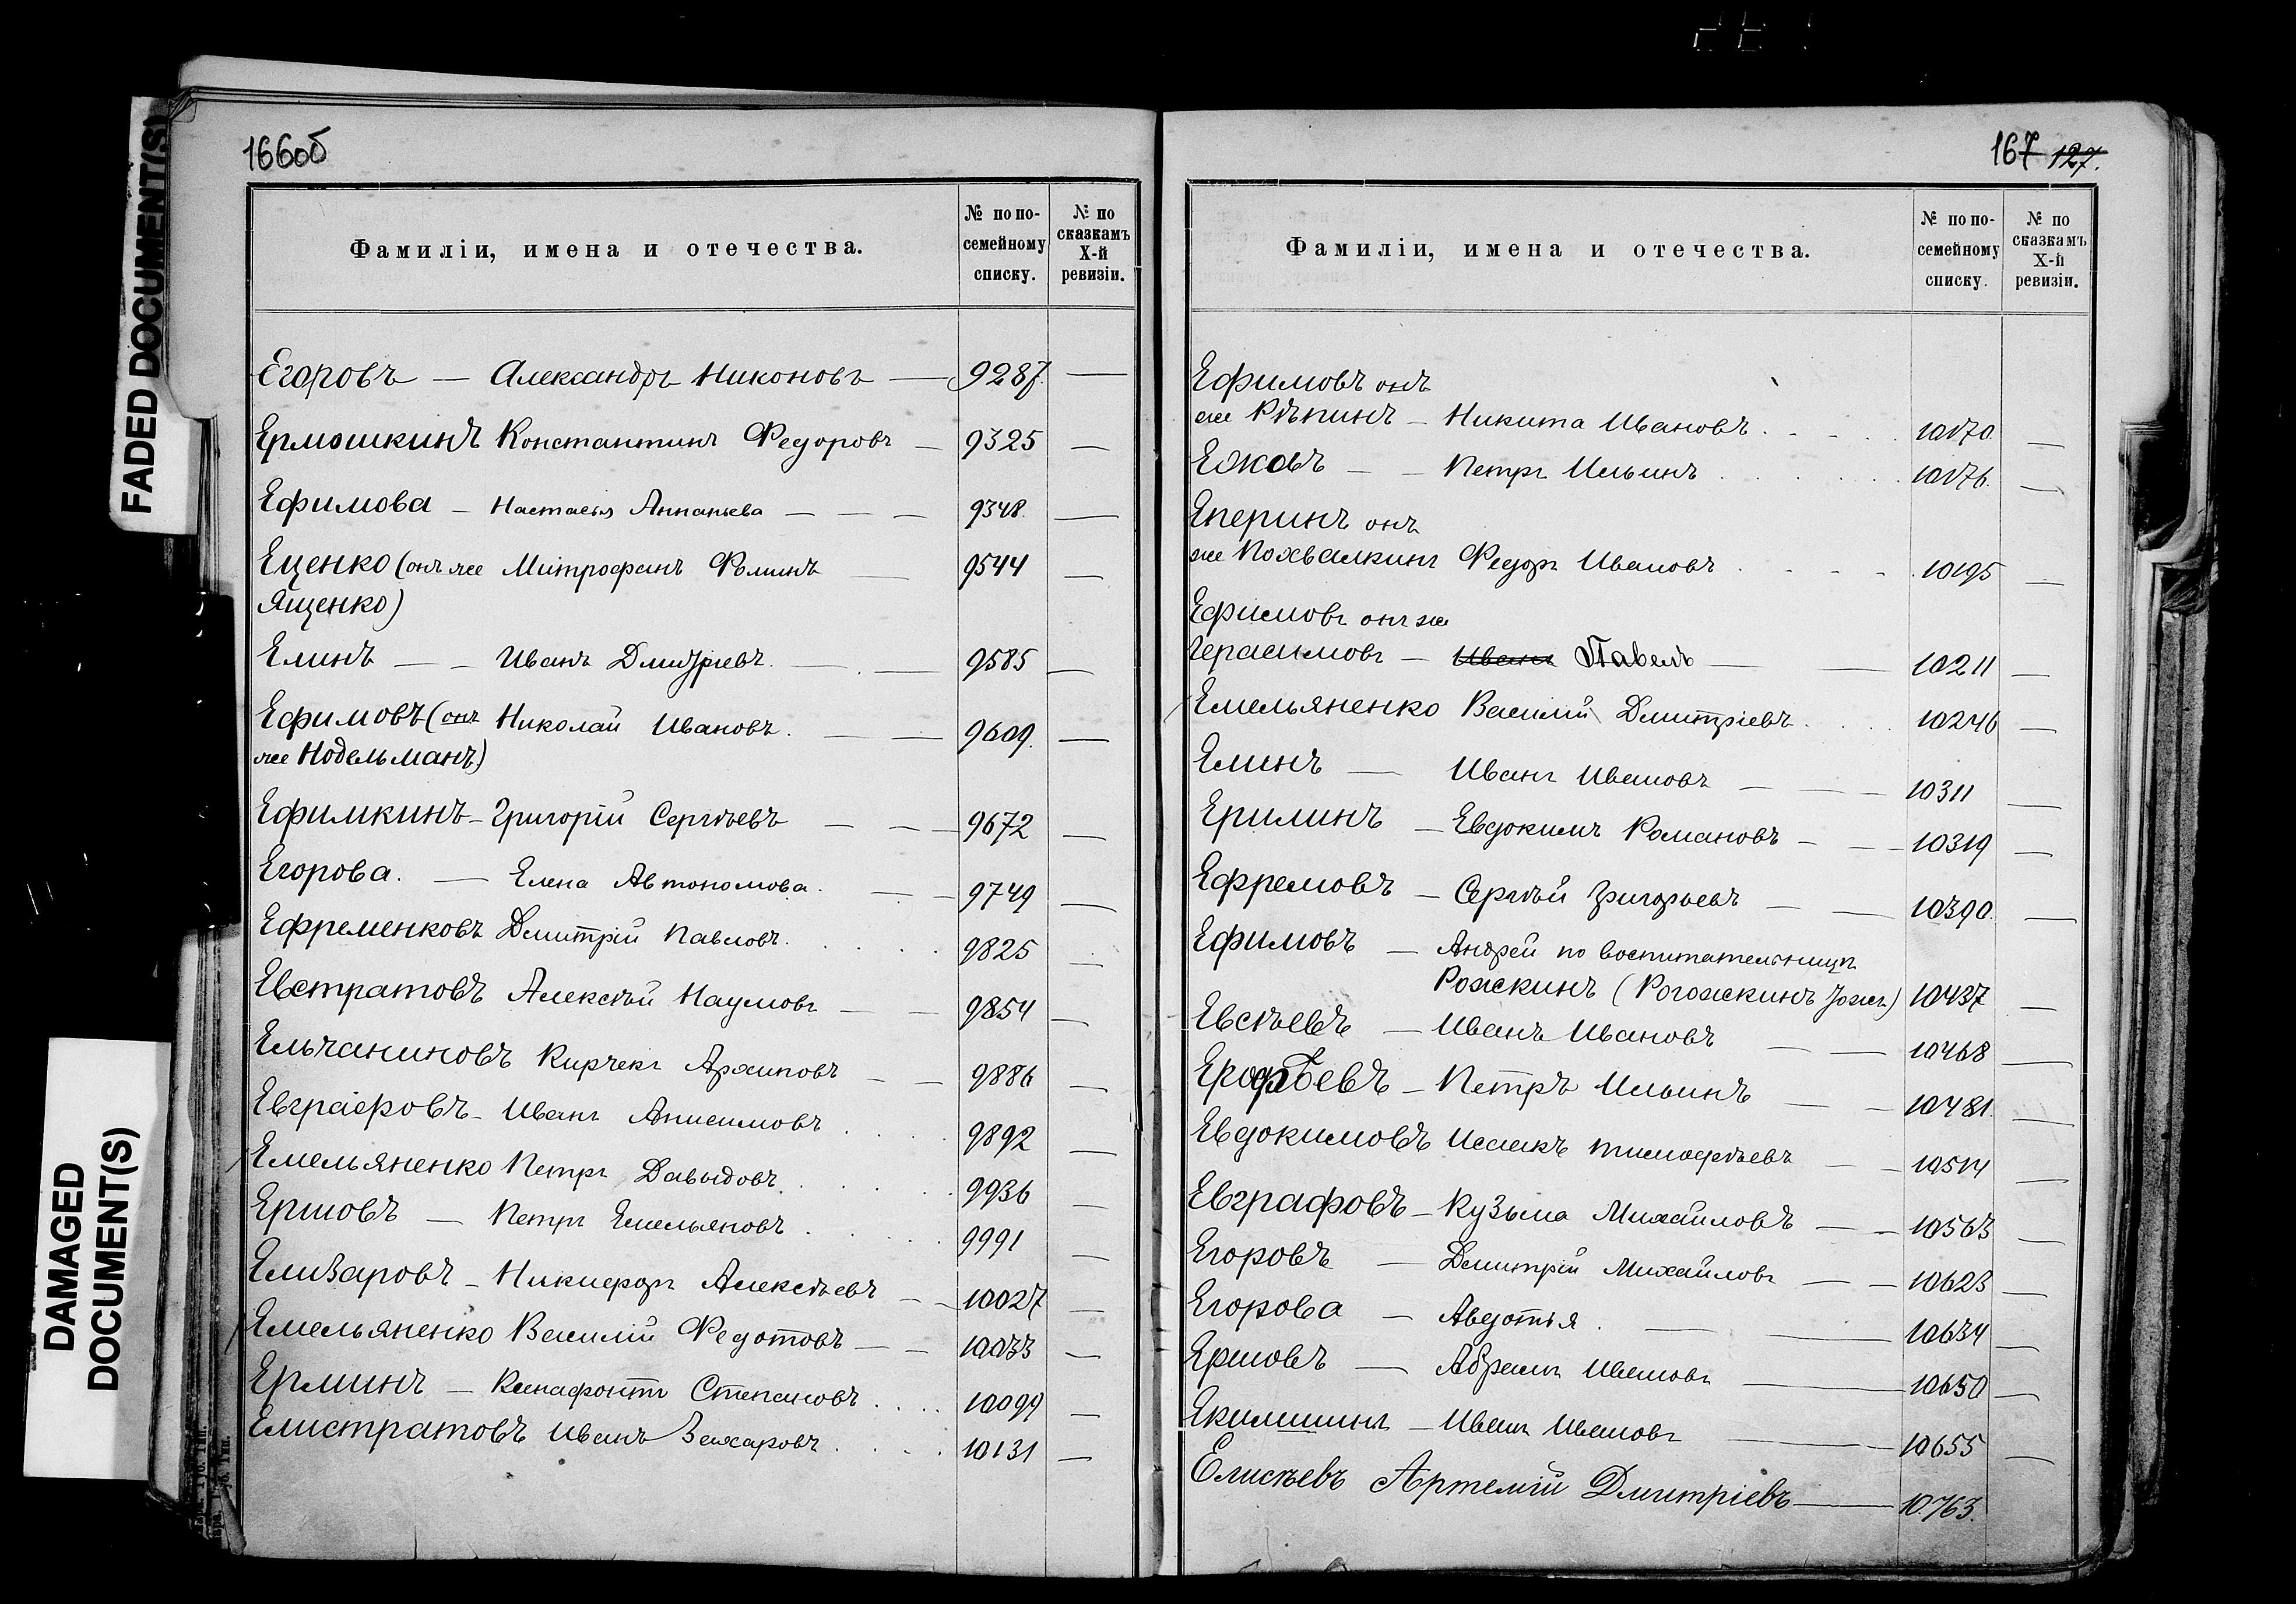 FADED DOCUMENT(S)
DAMAGED
DOCUMENT(S)
166об
Фамиліи, имена и отечества. № по по-семейному списку. № по сказкамъ X-й ревизіи.
Егоровъ — Александръ Никоновъ — 9287. —
Ермошкинъ Константинъ Федоровъ — 9325 —
Ефимова — Настасья Ананьева — — — 9348. —
Еценко (онъ же Митрофанъ Фоминъ — 9544 —
Ященко)
Елинъ — — Иванъ Дмитріевъ. — . — 9585 —
Ефимовъ (онъ Николай Ивановъ. — — 9609. —
же Нодельманъ)
Ефимкинъ — Григорій Сергѣевъ — — — 9672 —
Егорова. — Елена Автономова. — — 9749 —
Ефременковъ Дмитрій Павловъ. . . . . 9825 —
Евстратовъ Алексѣй Наумовъ — — 9854 —
Ельчаниновъ Архиповъ — — 9886 —
Евграфовъ — Иванъ Анисимовъ . . . . 9892 —
Емельяненко Петръ Давыдовъ . . . . . 9936 —
Ершовъ — Петръ Емельяновъ . . . . . 9991 —
Елизаровъ — Никифоръ Алексѣевъ — — 10027 —
Емельяненко Василій Федотовъ — — 10033 —
Ерминъ — Ксенофонтъ Степановъ . . . . 10099 —
Елистратовъ Иванъ Захаровъ . . . . 10131 —
167 127.
Фамиліи, имена и отечества. № по по-семейному списку. № по сказкамъ X-й ревизіи.
Ефимовъ онъ
же Рѣпинъ — Никита Ивановъ . . . . . 10170. —
Ежовъ — — Петръ Ильинъ . . . . . . 10176. —
Еперинъ онъ
же Похвалкинъ Федоръ Ивановъ . . . . . 10195 —
Ефимовъ онъ же
Герасимовъ — Иванъ Павелъ — — 10211 —
Емельяненко Василій Дмитріевъ . . . . 10246 —
Елинъ — Иванъ Ивановъ — — — 10311 —
Ерилинъ — Евдокимъ Романовъ — — — 10319 —
Ефремовъ — Сергѣй Григорьевъ — — 10390. —
Ефимовъ — Андрей по воспитательницѣ
Рожкинъ (Рогожкинъ тожъ) 10437 —
Евсѣевъ — Иванъ Ивановъ — — 10468 —
Ерофѣевъ — Петръ Ильинъ — — 10481. —
Евдокимовъ Исаакъ Тимофѣевъ — — 10514 —
Евграфовъ — Кузьма Михайловъ — — 10563 —
Егоровъ — Дмитрій Михайловъ — — 10623 —
Егорова — Авдотья . — — 10634 —
Ершовъ — Абрамъ Ивановъ — 10650 —
Екимишинъ — Иванъ Ивановъ — 10655 —
Елисѣевъ Артемій Дмитріевъ — 10763.